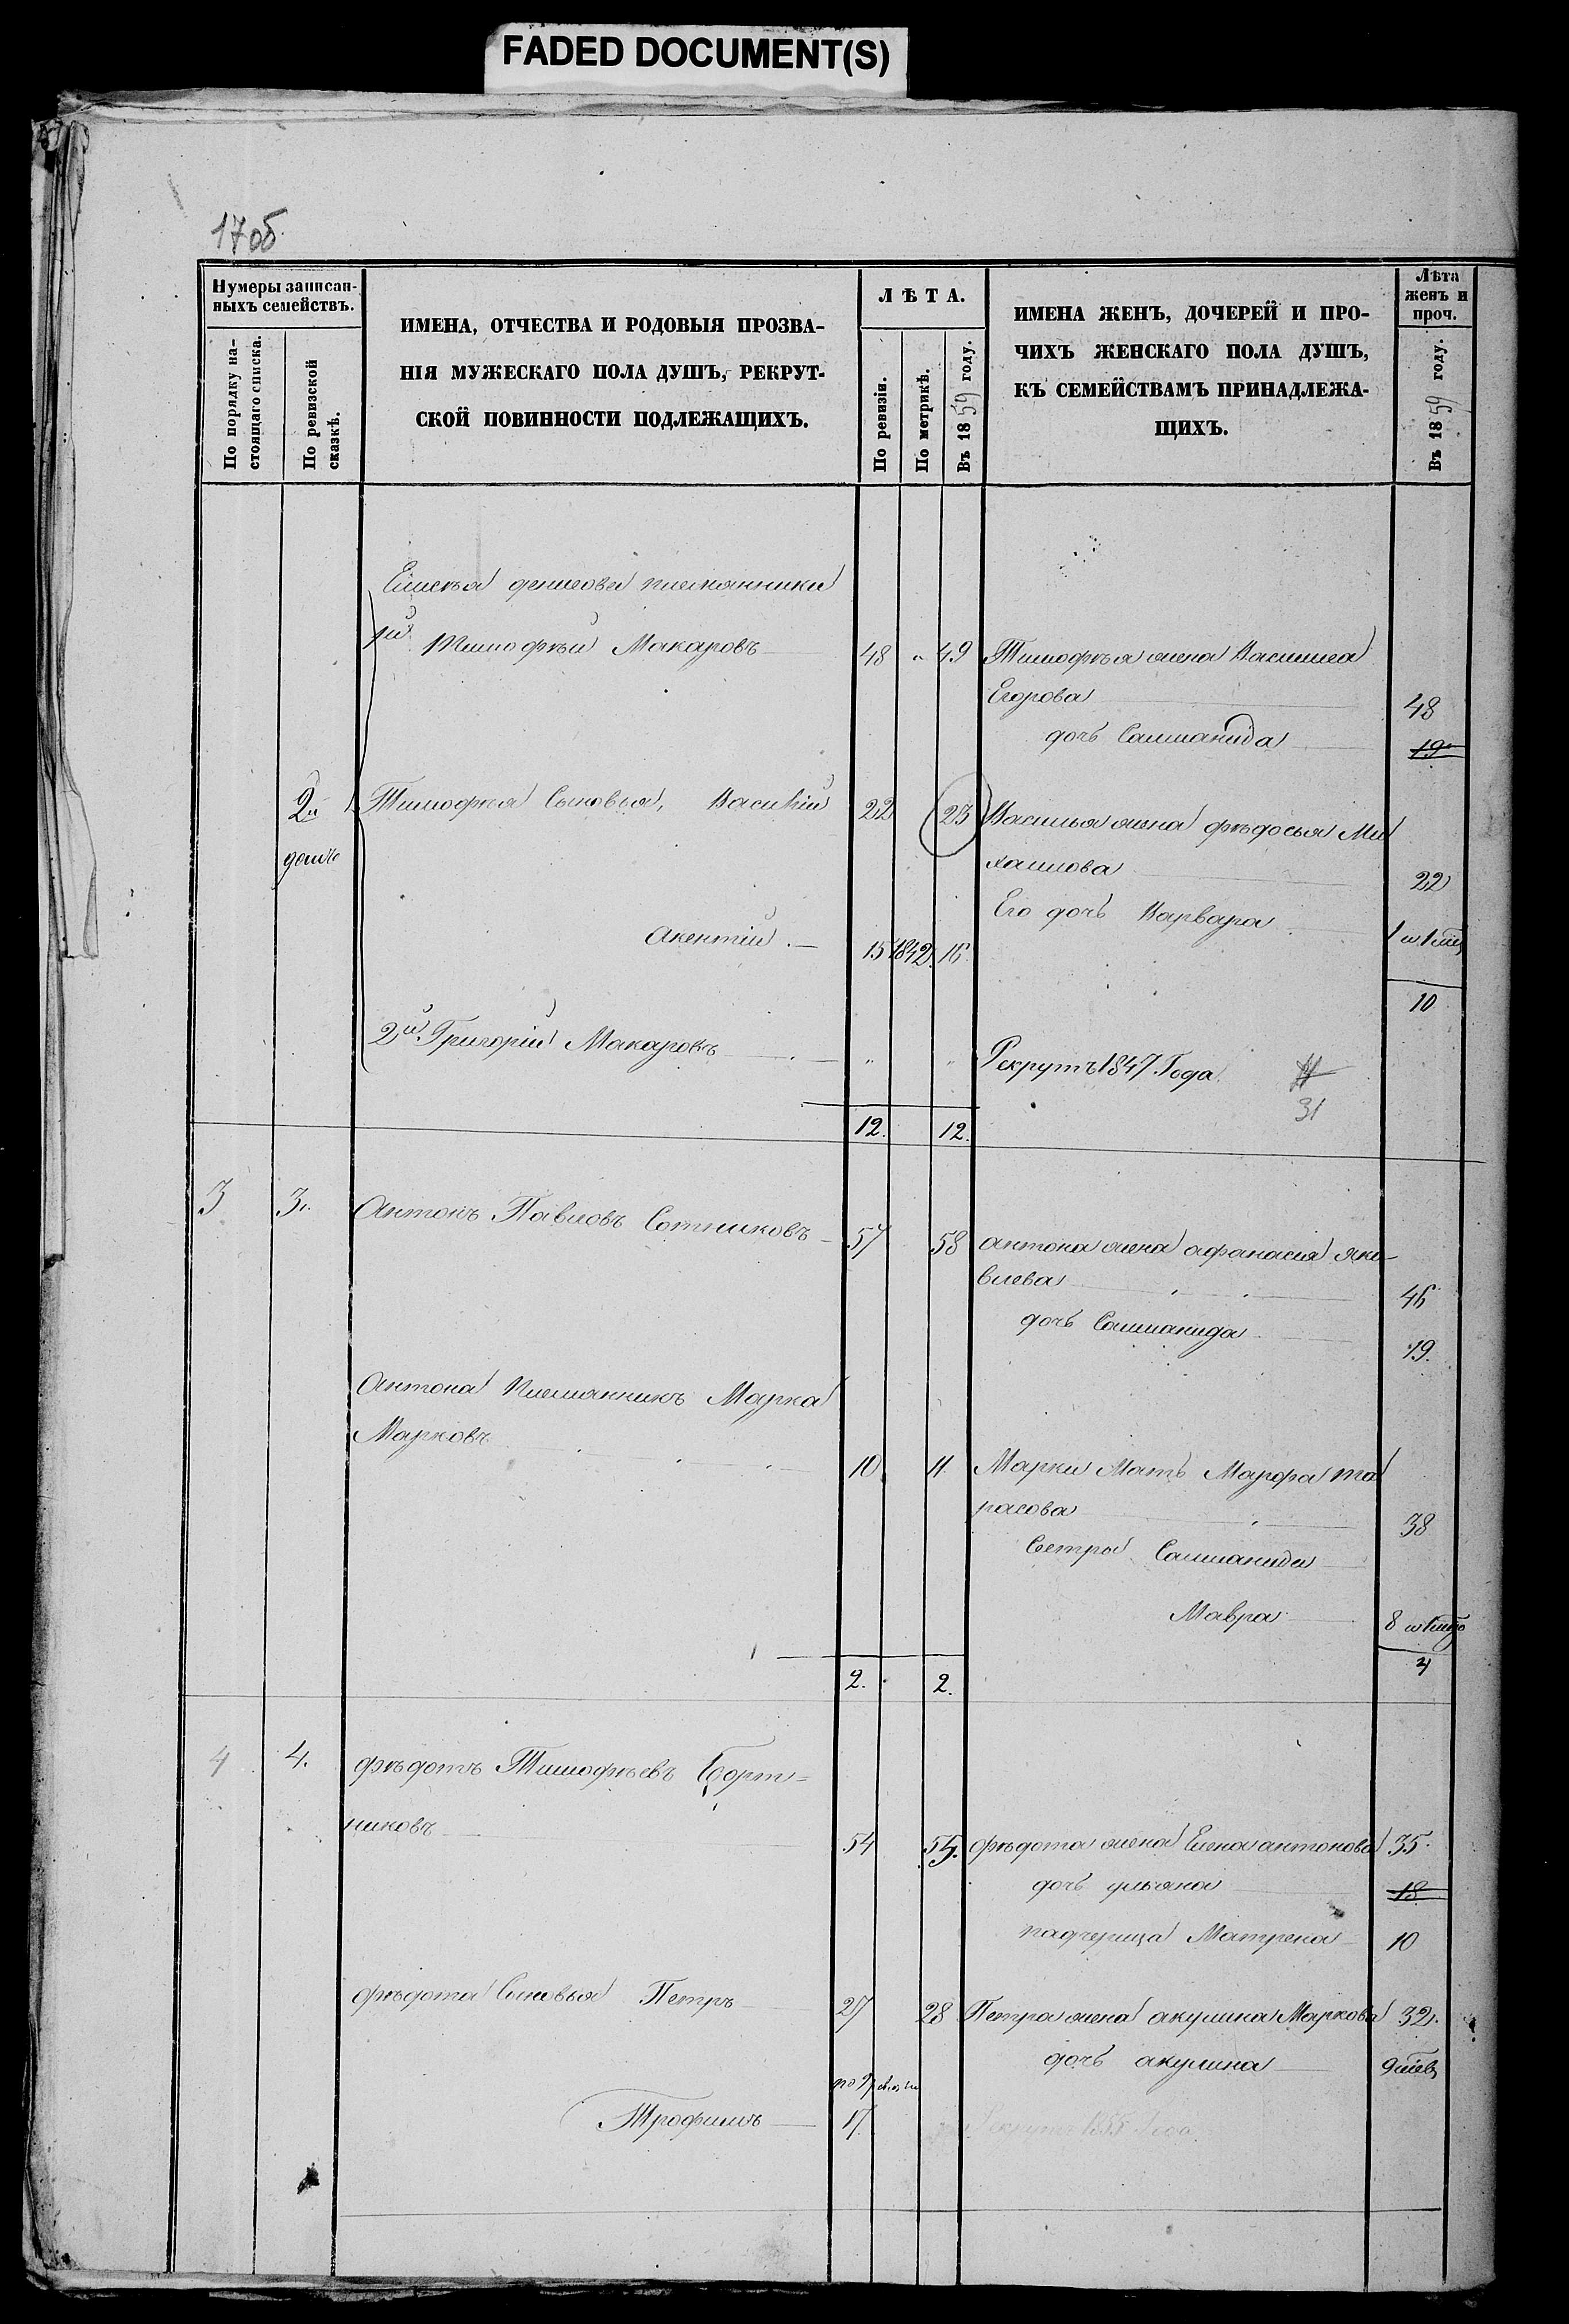 FADED DOCUMENT(S)
17 об.
Нумеры записан-
ныхъ семействъ.
По порядку на-
стоящаго списка.
По ревизской
сказкѣ.
ИМЕНА, ОТЧЕСТВА И РОДОВЫЯ ПРОЗВА-
НІЯ МУЖЕСКАГО ПОЛА ДУШЪ, РЕКРУТ-
СКОЙ ПОВИННОСТИ ПОДЛЕЖАЩИХЪ.
ЛѢТА.
По ревизіи.
По метрикѣ.
Въ 1859 году.
ИМЕНА ЖЕНЪ, ДОЧЕРЕЙ И ПРО-
ЧИХЪ ЖЕНСКАГО ПОЛА ДУШЪ,
КЪ СЕМЕЙСТВАМЪ ПРИНАДЛЕЖА-
ЩИХЪ.
Лѣта
женъ и
проч.
Въ 1859 году.
племянники
1й Тимофѣй Макаровъ 48 " 49 Тимофѣя жена Василиса
Егорова 48
дочь Саломанида 19
2й Тимофѣя Сыновья, Василій 22 23 Василья жена фѣдосья Ми
домъ
хаилова 22
Его дочь Варвара 1
Акентій 15 1842 16
10
2й Григорій Макаровъ " " Рекрутъ 1847 Года
31
12. 12.
3 3. Антонъ Павловъ Сотниковъ 57 58 антона жена афанасия яко-
влева 46
дочь Саломанида 19.
Антона племянникъ Марка
Марковъ 10 11. Марки Мать Марфа та
расова 38
Сестры Саломанида
Мавра 8
4
2. 2.
4 4. фѣдотъ Тимофѣевъ Борт=
никовъ 54 55. фѣдота жена Елена антонова 35.
дочь ульяна 18
падчерица Матрена 10
фѣдота Сыновья Петръ 27 28 Петра жена акулина Маркова 32.
дочь акулина 9
по 9 ревизіи
Трофимъ 17. Рекрутъ 1855 Года